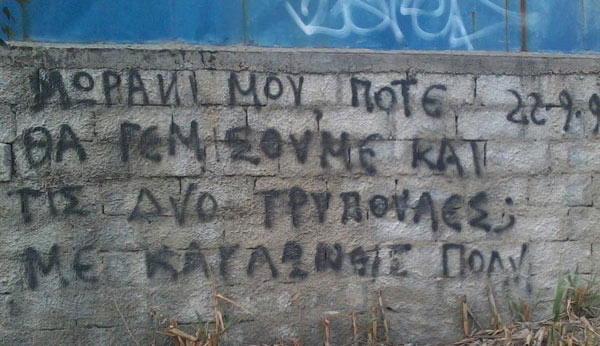 ΜΩΡΑΚΙ ΜΟΥ ΠΟΤΕ 22-9-9
ΘΑ ΓΕΜΙΣΟΥΜΕ ΚΑΙ
ΤΙΣ ΔΥΟ ΤΡΥΠΟΥΛΕΣ;
ΜΕ ΚΑΥΛΩΝΕΙΣ ΠΟΛΥ